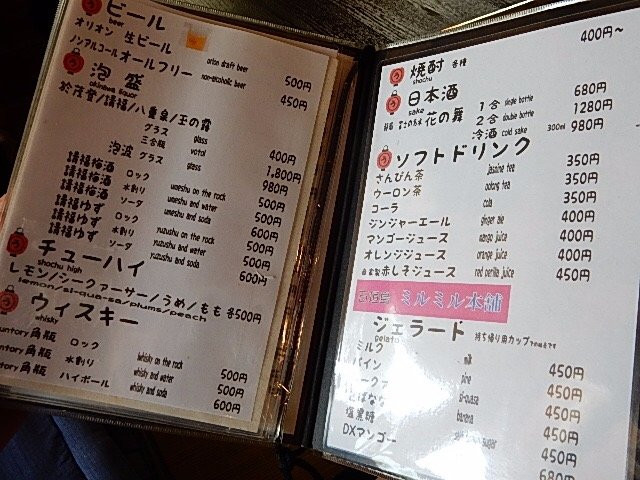 ビール
beer
オリオン 生ビール orion draft beer 500円
ノンアルコール オールフリー non-alcoholic beer 450円
泡盛
okinawa liquor
於茂登/請福/八重泉/玉の露
グラス glass 400円
三合瓶 1,800円
泡波 グラス glass 980円
請福梅酒 ロック umeshu on the rock 500円
請福梅酒 水割り umeshu and water 500円
請福梅酒 ソーダ umeshu and soda 600円
請福ゆず ロック yuzushu on the rock 500円
請福ゆず 水割り yuzushu and water 500円
請福ゆず ソーダ yuzushu and soda 600円
チューハイ
shochu high
レモン/シークァーサー/うめ/もも 各500円
lemon/si-qua-sa/plums/peach
ウィスキー
whisky
suntory角瓶 ロック whisky on the rock 500円
suntory角瓶 水割り whisky and water 500円
suntory角瓶 ハイボール whisky and soda 600円
焼酎 各種 400円~
shochu
日本酒
sake
花の舞 1合 single bottle 680円
2合 double bottle 1280円
冷酒 cold sake 300ml 980円
ソフトドリンク
さんぴん茶 jasmine tea 350円
ウーロン茶 oolong tea 350円
コーラ cola 350円
ジンジャーエール ginger ale 400円
マンゴージュース mango juice 400円
オレンジジュース orange juice 400円
自家製赤しそジュース red perilla juice 450円
ミルミル本舗
ジェラード 持ち帰り用カップ
gelato
ミルク milk 450円
パイン pine 450円
si-quasa 450円
banana 450円
塩黒糖 sugar 450円
DXマンゴー 680円